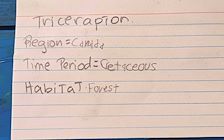 Triceraption.
Region=Canada
Time Period=Cretaceous
HaBiTaT-Forest